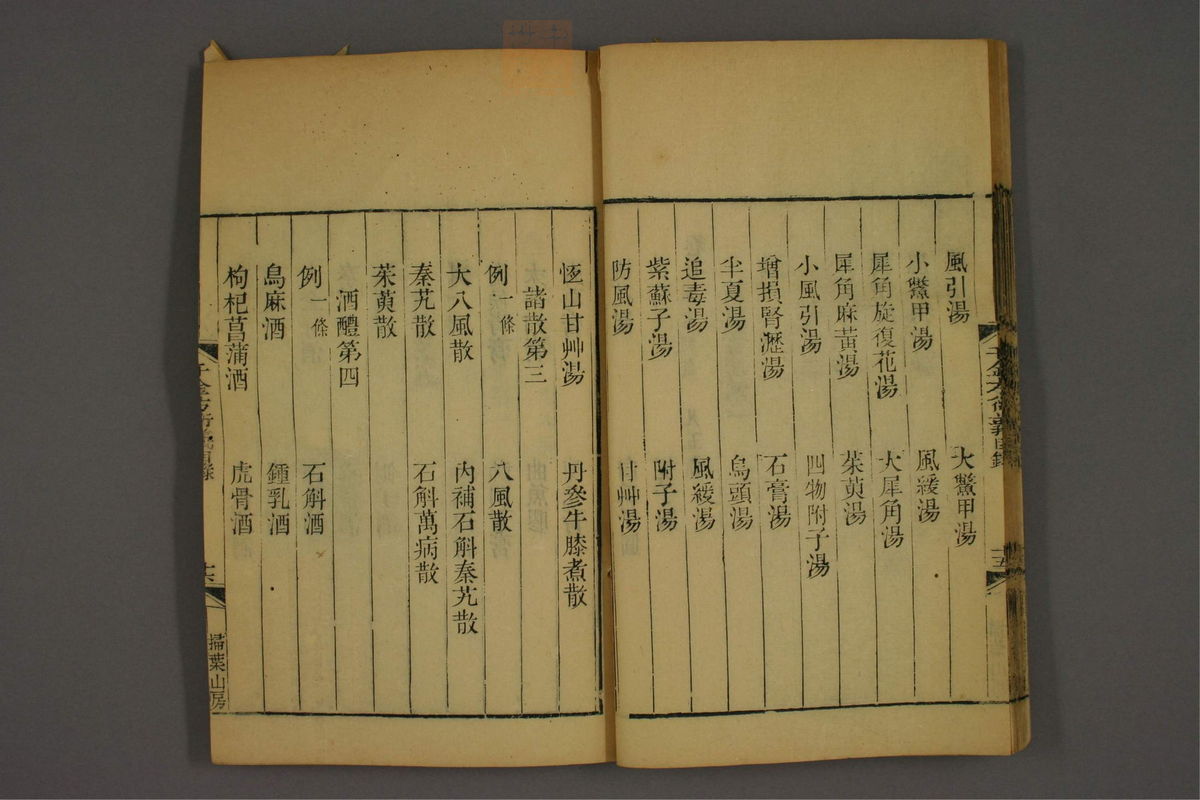 風引湯 大鱉甲湯
小鱉甲湯 風緩湯
犀角旋復花湯 大犀角湯
犀角麻黃湯 茱萸湯
小風引湯 四物附子湯
增損腎瀝湯 石膏湯
半夏湯 烏頭湯
追毒湯 風緩湯
紫蘇子湯 附子湯
防風湯 甘艸湯
千金方衍義目錄 十五
恆山甘艸湯 丹參牛膝煮散
諸散第三
例一條 八風散
大八風散 內補石斛秦艽散
秦艽散 石斛萬病散
茱萸散
酒醴第四
例一條 石斛酒
烏麻酒 鍾乳酒
枸杞菖蒲酒 虎骨酒
千金方衍義目錄 十六 掃葉山房